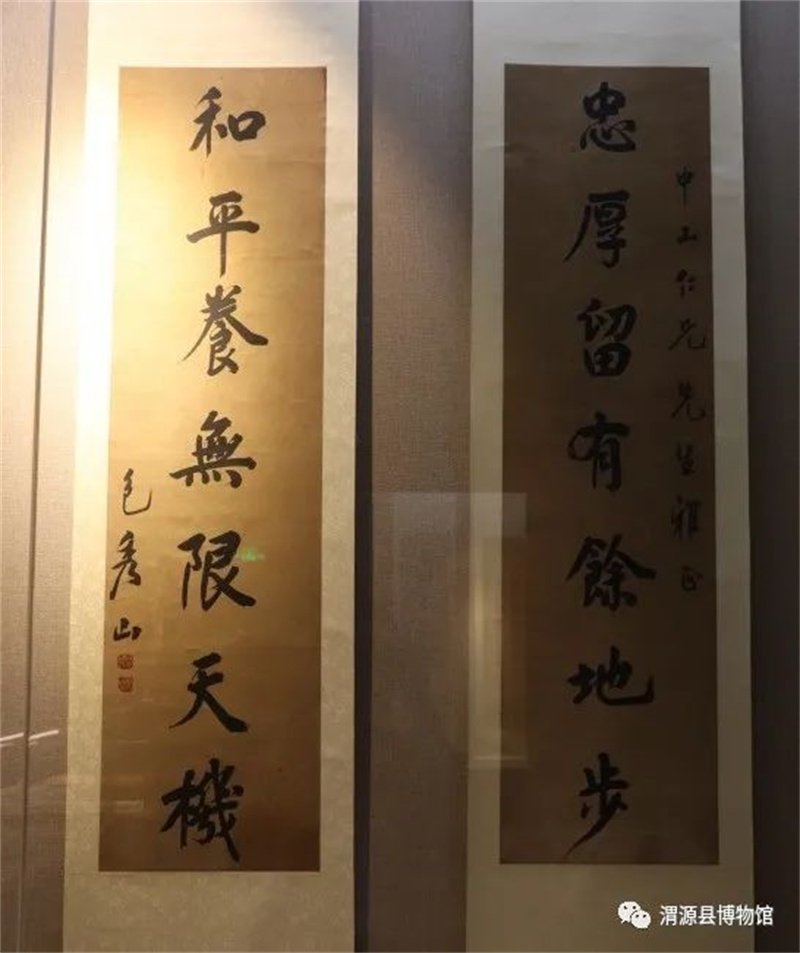 中山仁兄先生雅正
忠厚留有餘地步
和平養無限天機
包秀山
渭源县博物馆